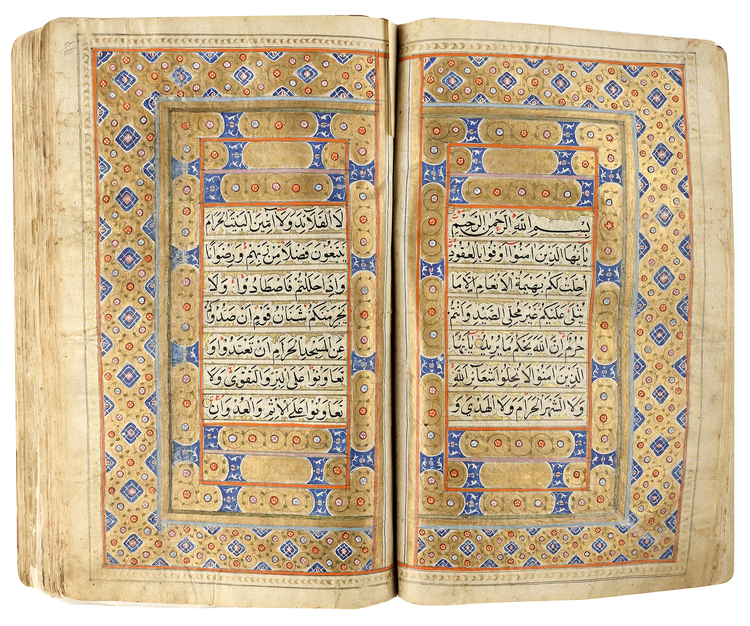 بسم الله الرحمن الرحيم
يا يها الذين امنوا اوفوا بالعقود
احلت لكم بهيمة الانعام الا ما
يتلى عليكم غير محلي الصيد وانتم
حرم ان الله يحكم ما يريد يا يها
الذين امنوا لا تحلوا شعائر الله
ولا الشهر الحرام ولا الهدي و
لا القلائد ولا آمين البيت الحرام
يبتغون فضلا من ربهم ورضوانا
واذا حللتم فاصطادوا ولا
يجرمنكم شنان قوم ان صدوكم
عن المسجد الحرام ان تعتدوا و
تعاونوا على البر والتقوى ولا
تعاونوا على الاثم والعدوان